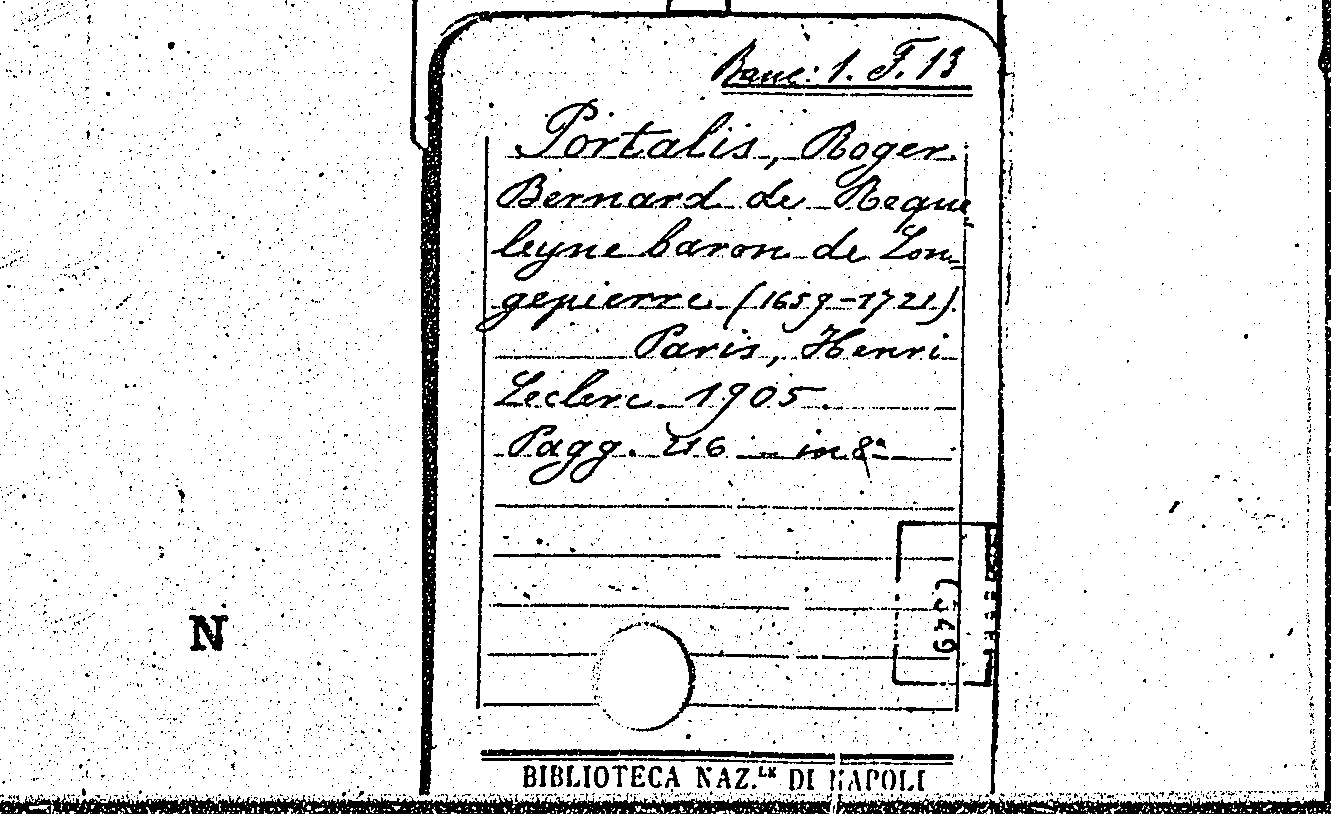 Banc: 1. F. 13
Portalis, Roger
Bernard de Reque
leyne baron de Lon=
gepierre (1659-1721).
Paris, Henri
Leclerc 1905.
Pagg. 216 - in 8º
N
BIBLIOTECA NAZ.LE DI NAPOLI